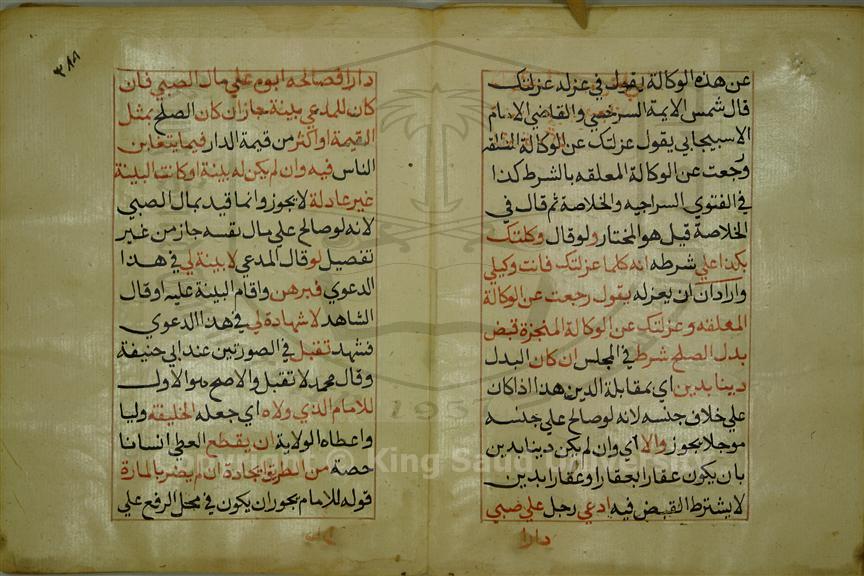 عن هذه الوكالة يقول في عزله عزلتك
قال شمس الايمة السرخسي والقاضي الامام
الاسبيجابي يقول عزلتك عن الوكالة المطلقه
رجعت عن الوكالة المعلقه بالشرط كذا
في الفتوي السراجيه والخلاصة ثم قال في
الخلاصة قيل هو المختار ولو قال وكلتك
بكذا علي شرطه انه كلما عزلتك فانت وكيلي
واراد ان يعزله يقول رجعت عن الوكالة
المعلقه وعزلتك عن الوكالة المنجزة قبض
بدل الصلح شرط في المجلس ان كان البدل
دينا بدين اي بمقابلة الدين هذا اذا كان
علي خلاف جنسه لانه لو صالح علي جنسه
موجلا يجوز والا اي وان لم يكن دينا بدين
بان يكون عقارا بعقار او عقارا بدين
لا يشترط القبض فيه ادعي رجل علي صبي
دارا
٣٨٨
دارا فصالحه ابوه علي مال الصبي فان
كان للمدعي بينة جاز ان كان الصلح بمثل
القيمة او اكثر من قيمة الدار فيما يتغابن
الناس فيه وان لم يكن له بينة او كانت البينة
غير عادلة لا يجوز وانما قيد بمال الصبي
لانه لو صالح علي مال نفسه جاز من غير
تفصيل لو قال المدعي لا بينة لي في هذا
الدعوي فبرهن واقام البينة عليه او قال
الشاهد لا شهادة لي في هذا الدعوي
فشهد تقبل في الصورتين عند ابي حنيفة
وقال محمد لا تقبل والاصح هو الاول
للامام الذي ولاه اي جعله الخليفة وليا
واعطاه الولاية ان يقطع العطي انسانا
حصة من الطريق الجادة ان لم يضر بالمارة
قوله للامام يجوز ان يكون في محل الرفع علي
Copyright © King Saud University
1957